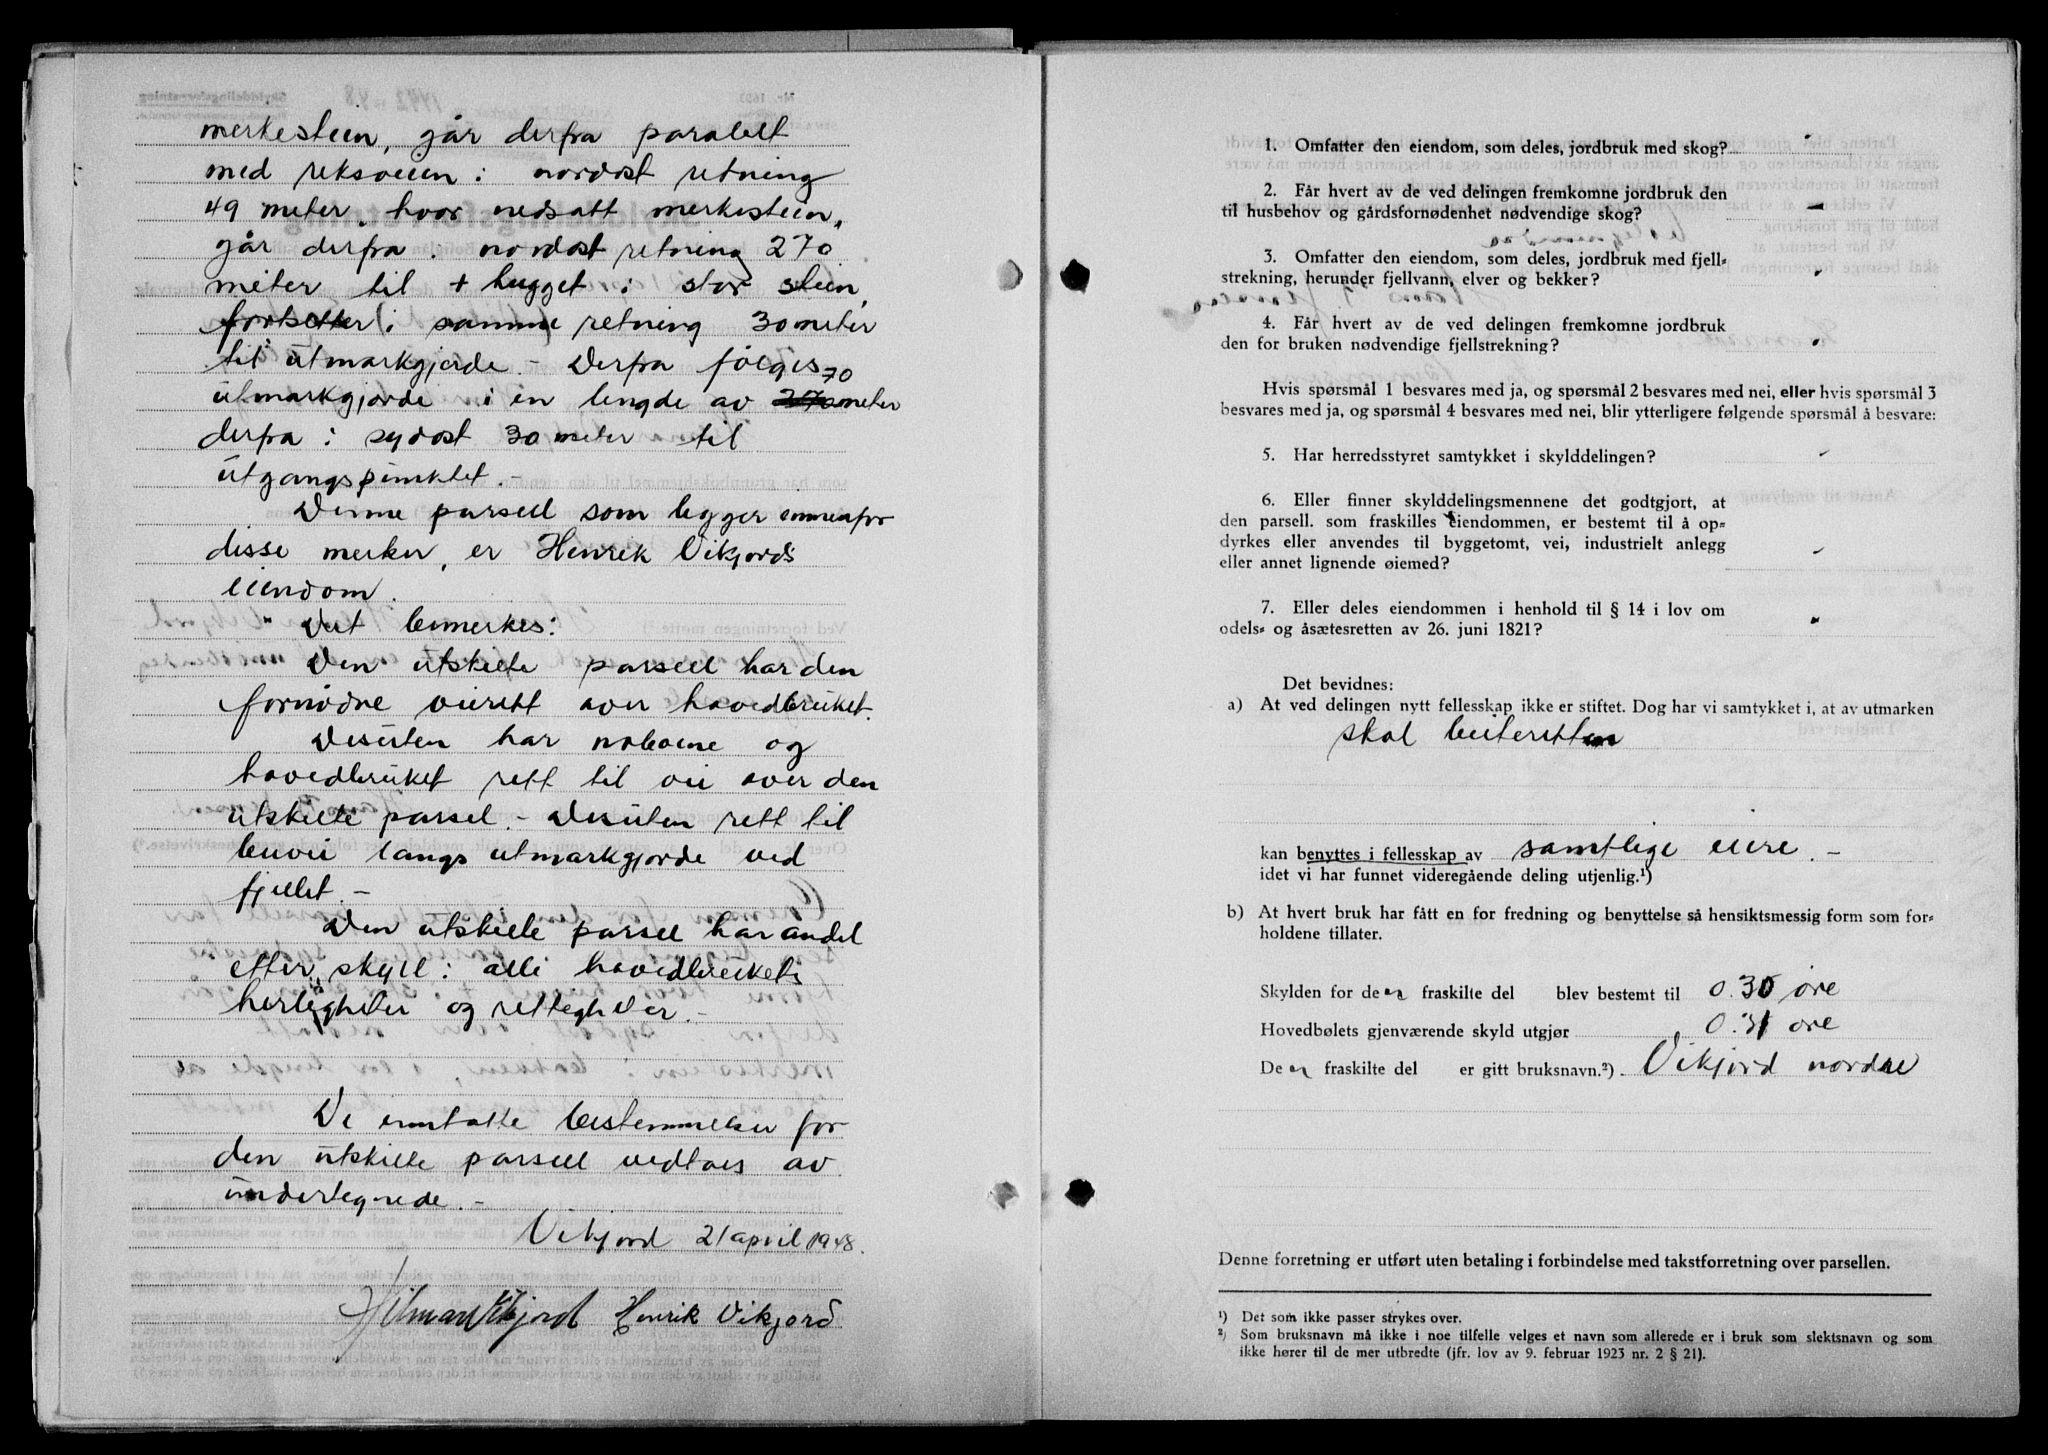 merkestein, går derfra paralelt
med riksveien i nordøst retning
49 meter, hvor nedsatt merkestein,
går derfra i nordøst retning 270
meter til + hugget i stor stein,
fortsetter i samme retning 30 meter
til utmarkgjerde - Derfra følges
utmarkgjerde i en lengde av 70 meter
derfra i sydøst 30 meter til
utgangspunktet. -
Denne parsell som ligger innenfor
disse merker, er Henrik Vikjords
eiendom.
Det bemerkes:
Den utskilte parsell har den
fornødne veirett over hovedbruket.
Desuten har naboene og
hovedbruket rett til vei over den
utskilte parsel. - Desuten rett til
buvei langs utmarkgjerde ved
fjellet. -
Den utskilte parsell har andel
efter skyll i alle hovedbrukets
herligheder og rettigheder. -
De inntatte bestemmelser for
den utskilte parsell vedtaes av
undertegnede. -
Vikjord 21 april 1948.
Hilmar Vikjord Henrik Vikjord
1. Omfatter den eiendom, som deles, jordbruk med skog? -
2. Får hvert av de ved delingen fremkomne jordbruk den
til husbehov og gårdsfornødenhet nødvendige skog? -
3. Omfatter den eiendom, som deles, jordbruk med fjell-
strekning, herunder fjellvann, elver og bekker? -
4. Får hvert av de ved delingen fremkomne jordbruk
den for bruken nødvendige fjellstrekning? -
Hvis spørsmål 1 besvares med ja, og spørsmål 2 besvares med nei, eller hvis spørsmål 3
besvares med ja, og spørsmål 4 besvares med nei, blir ytterligere følgende spørsmål å besvare:
5. Har herredsstyret samtykket i skylddelingen? -
6. Eller finner skylddelingsmennene det godtgjort, at
den parsell. som fraskilles eiendommen, er bestemt til å op-
dyrkes eller anvendes til byggetomt, vei, industrielt anlegg
eller annet lignende øiemed? -
7. Eller deles eiendommen i henhold til § 14 i lov om
odels- og åsætesretten av 26. juni 1821? -
Det bevidnes:
a) At ved delingen nytt fellesskap ikke er stiftet. Dog har vi samtykket i, at av utmarken
skal beiteretten
kan benyttes i fellesskap av samtlige eiere. -
idet vi har funnet videregående deling utjenlig.¹)
b) At hvert bruk har fått en for fredning og benyttelse så hensiktsmessig form som for-
holdene tillater.
Skylden for den fraskilte del blev bestemt til 0.30 øre
Hovedbølets gjenværende skyld utgjør 0.31 øre
Den fraskilte del er gitt bruksnavn.²) Vikjord nordre
Denne forretning er utført uten betaling i forbindelse med takstforretning over parsellen.
¹) Det som ikke passer strykes over.
²) Som bruksnavn må ikke i noe tilfelle velges et navn som allerede er i bruk som slektsnavn og som
ikke hører til de mer utbredte (jfr. lov av 9. februar 1923 nr. 2 § 21).